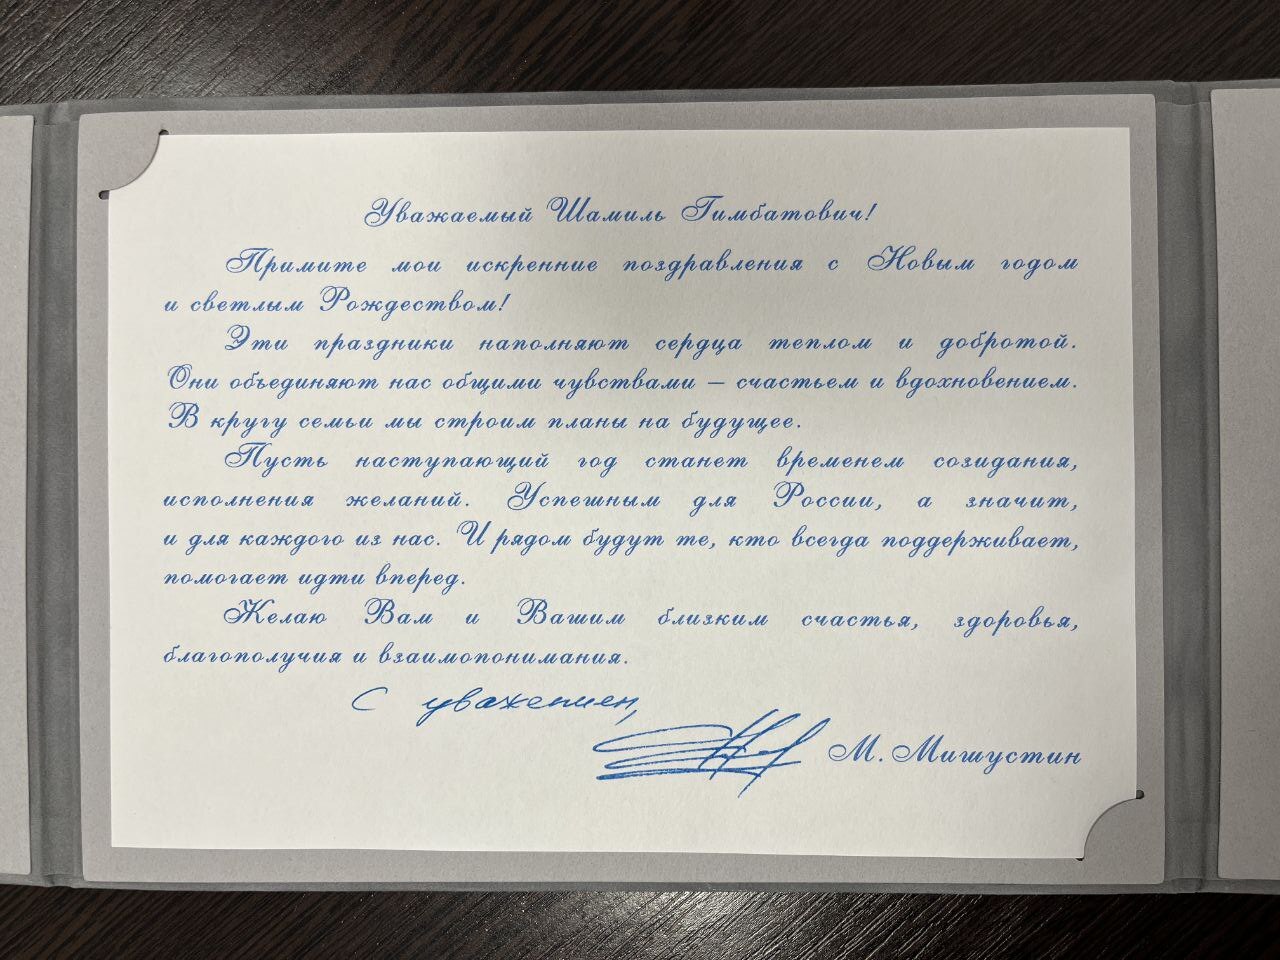 Уважаемый Шамиль Гимбатович!
Примите мои искренние поздравления с Новым годом
и светлым Рождеством!
Эти праздники наполняют сердца теплом и добротой.
Они объединяют нас общими чувствами – счастьем и вдохновением.
В кругу семьи мы строим планы на будущее.
Пусть наступающий год станет временем созидания,
исполнения желаний. Успешным для России, а значит,
и для каждого из нас. И рядом будут те, кто всегда поддерживает,
помогает идти вперед.
Желаю Вам и Вашим близким счастья, здоровья,
благополучия и взаимопонимания.
С уважением,
М. Мишустин